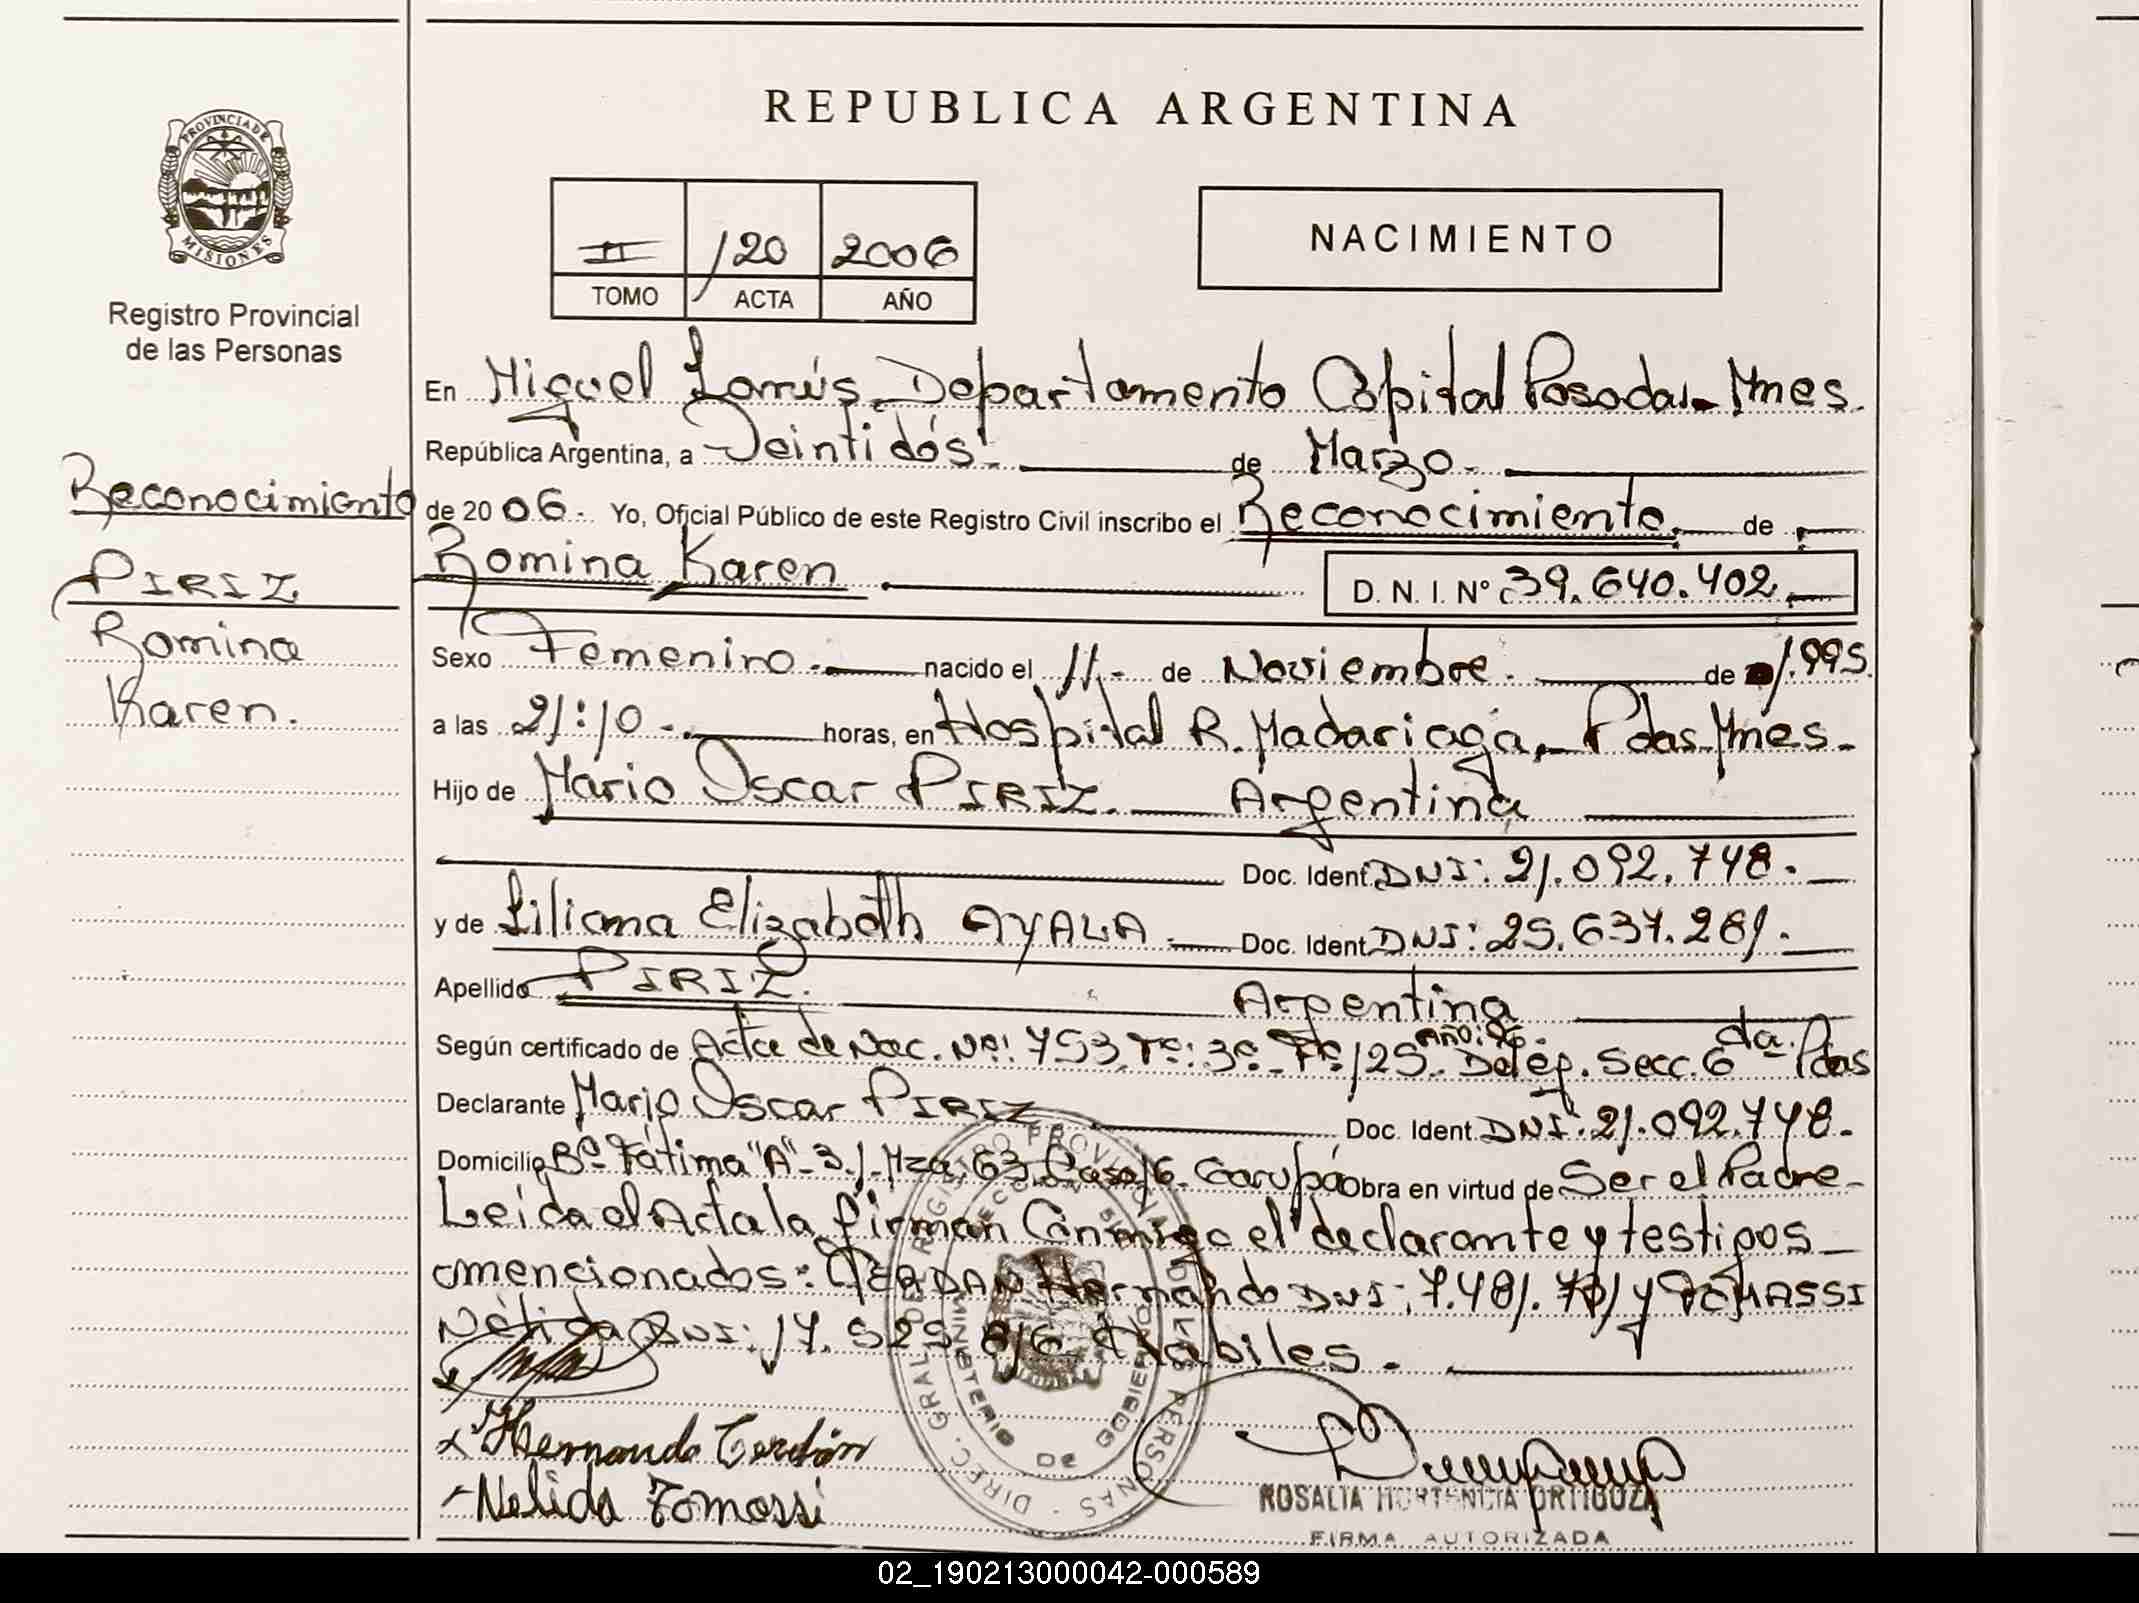 PROVINCIA DE
MISIONES
Registro Provincial
de las Personas
Reconocimiento
PIRIZ
Romina
Karen.
REPUBLICA ARGENTINA
II 120 2006
TOMO ACTA AÑO
NACIMIENTO
En Miguel Lanús, Departamento Capital Posadas - Mnes.
República Argentina, a Veintidós. de Marzo.
de 2006. Yo, Oficial Público de este Registro Civil inscribo el Reconocimiento. de
Romina Karen D. N. I. Nº 39.640.402.
Sexo Femenino. nacido el 11.- de Noviembre. de 1.995.
a las 21:10. horas, en Hospital R. Madariaga, Pdas. Mnes.
Hijo de Mario Oscar PIRIZ. Argentina
Doc. Ident. DNI: 21.092.748.
y de Liliana Elizabeth AYALA. Doc. Ident. DNI: 25.637.281.
Apellido PIRIZ. Argentina
Según certificado de Acta de Nac. Nº: 753, Tº: 3º - Fº: 125. Año: 96. Deleg. Secc. 6 da. Pdas
Declarante Mario Oscar PIRIZ Doc. Ident. DNI: 21.092.748.
Domicilio Bº Fátima "A" - 31 - Mza. 63. Casa 16. Garupá Obra en virtud de Ser el Padre -
Leida el Acta la firman Conmigo el declarante y testigos
mencionados: CERDAN Hernando DNI: 7.481. y TOMASSI
Nélida DNI: 17.525.816 Habiles.
Hernando Cerdán
Nelida Tomassi
DIREC. GRAL. DE REGISTRO PROVINCIAL DE LAS PERSONAS
MINISTERIO DE GOBIERNO
ROSALIA HORTENCIA ORTIGOZA
FIRMA AUTORIZADA
02_190213000042-000589